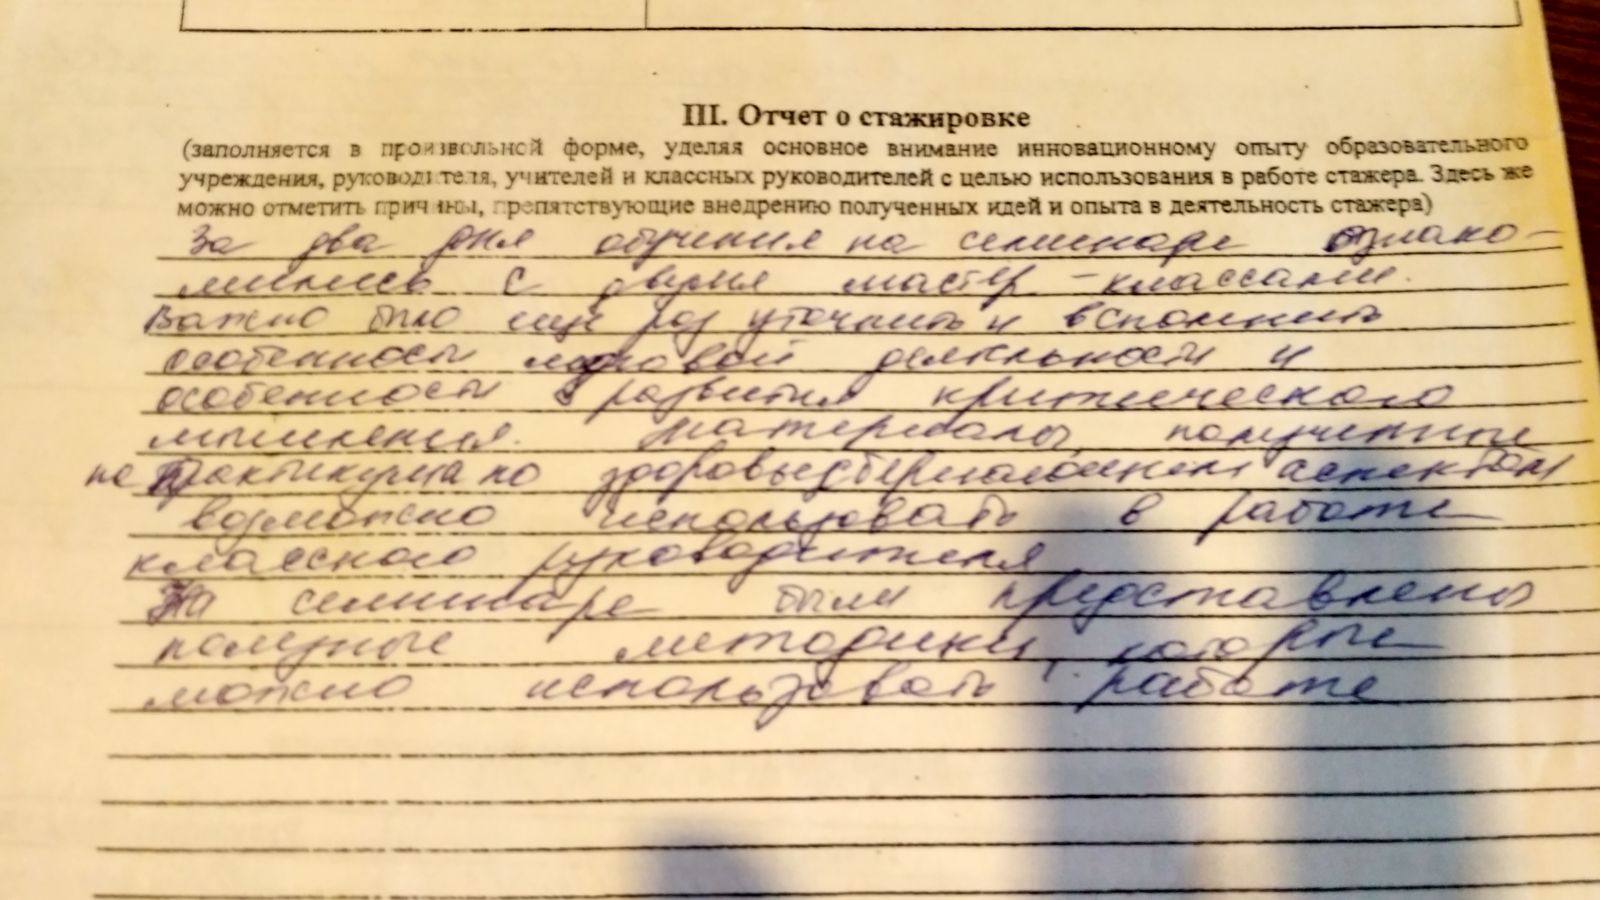 III. Отчет о стажировке
(заполняется в произвольной форме, уделяя основное внимание инновационному опыту образовательного
учреждения, руководителя, учителей и классных руководителей с целью использования в работе стажера. Здесь же
можно отметить причины, препятствующие внедрению полученных идей и опыта в деятельность стажера)
За два дня обучения на семинаре ознако-
мились с двумя мастер-классами.
Важно было ещё раз уточнить и вспомнить
особенности деятельности и
особенности развития критического
мышления. Материалы, полученные
на практикума по здоровьесберегающим аспектам
возможно использовать в работе
классного руководителя
На семинаре были представлены
полезные методики, которые
можно использовать работе